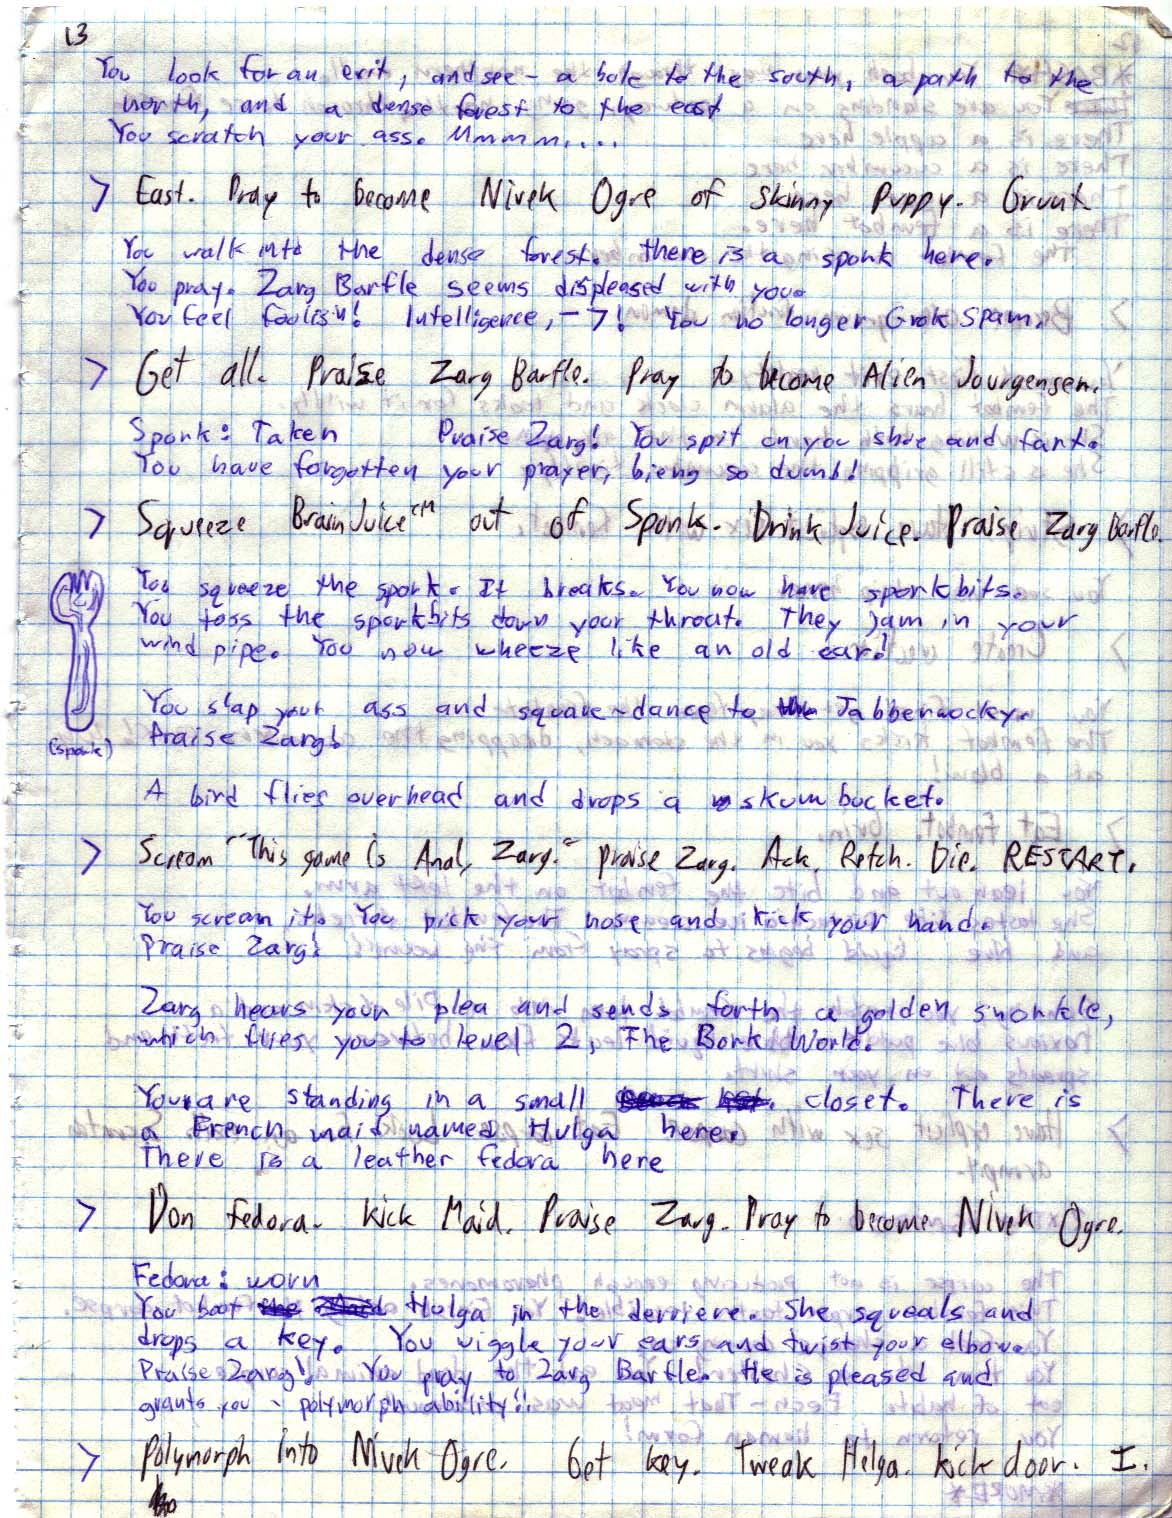 13
You look for an exit, and see - a hole to the south, a path to the
north, and a dense forest to the east
You scratch your ass. Mmmm....
> East. Pray to become Nivek Ogre of Skinny Puppy. Grunt.
You walk into the dense forest. there is a spork here.
You pray. Zarg Barfle seems displeased with you.
You feel foolish! Intelligence, -7! You no longer Grok Spam.
> Get all. Praise Zarg Barfle. Pray to become Alien Jourgensen.
Spork: Taken Praise Zarg! You spit on you shoe and fart.
You have forgotten your prayer, bieng so dumb!
> Squeeze BrainJuice™ out of Spork. Drink Juice. Praise Zarg Barfle.
You squeeze the spork. It breaks. You now have spork bits.
You toss the sporkbits down your throat. They jam in your
wind pipe. You now wheeze like an old car!
You slap your ass and square-dance to Jabberwocky.
Praise Zarg!
(spork)
A bird flies overhead and drops a skum bucket.
> Scream "This game is Anal, Zarg." praise Zarg. Ack. Retch. Die. RESTART.
You scream it. You pick your nose and kick your hand.
Praise Zarg!
Zarg hears your plea and sends forth a golden snorkle,
which flies you to level 2, The Bork World.
You are standing in a small closet. There is
a French maid named Hulga here.
There is a leather fedora here
> Don fedora. Kick Maid. Praise Zarg. Pray to become Nivek Ogre.
Fedora: worn
You boot Hulga in the derriere. She squeals and
drops a key. You wiggle your ears and twist your elbow.
Praise Zarg! You pray to Zarg Barfle. He is pleased and
grants you polymorph ability!!
> Polymorph into Nivek Ogre. Get key. Tweak Helga. kick door. I.